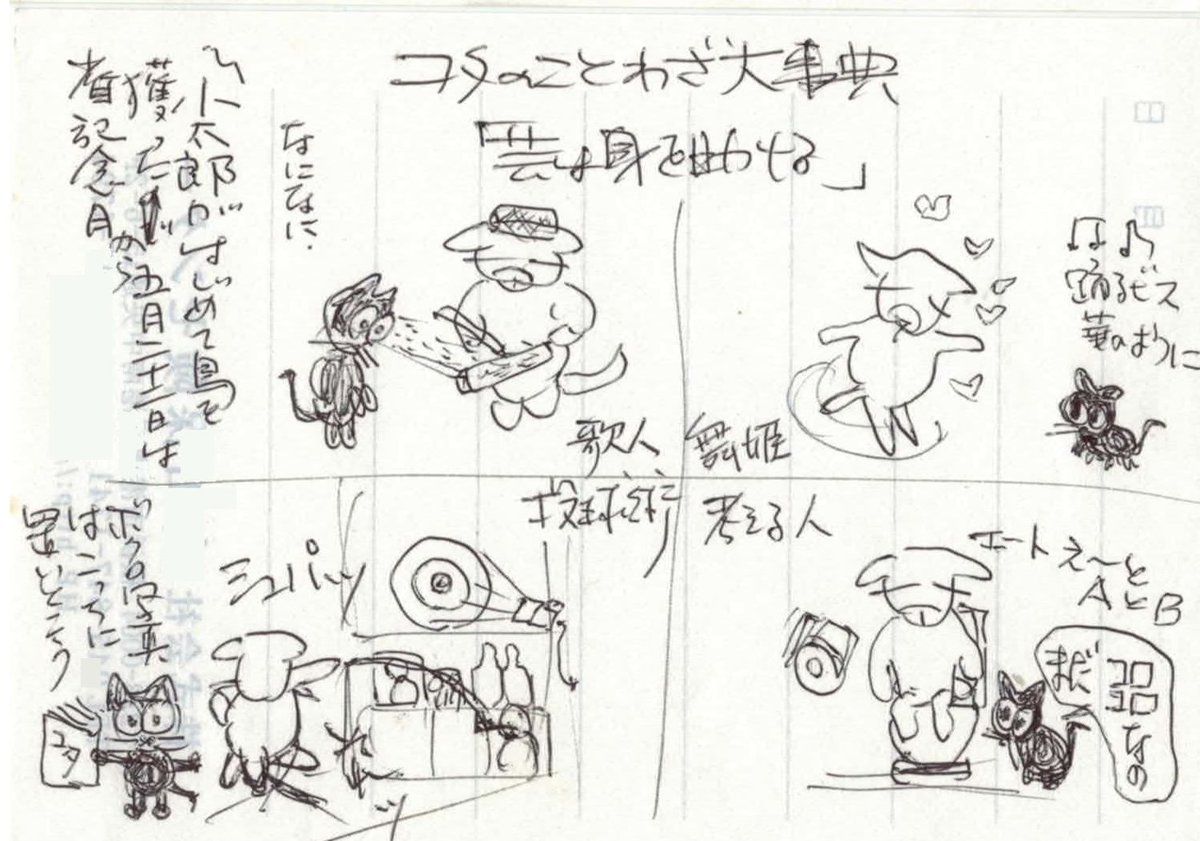 コタのことわざ大事典
「芸は身を助ける」
踊るビス
華のように
舞姫
なになに.
歌人
小太郎がはじめて鳥を
獲ったから五月二十一日は
省記念日
考える人
エート えーと
AとB
まだ
なの
投球術
シュパッ
ボクの写真
はこっちに
置いとこう
コタ